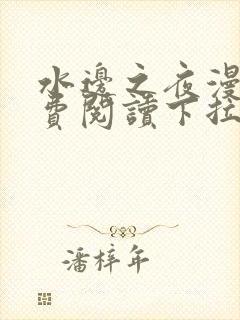 水邊之夜漫
費閱讀下拉
潘梓年